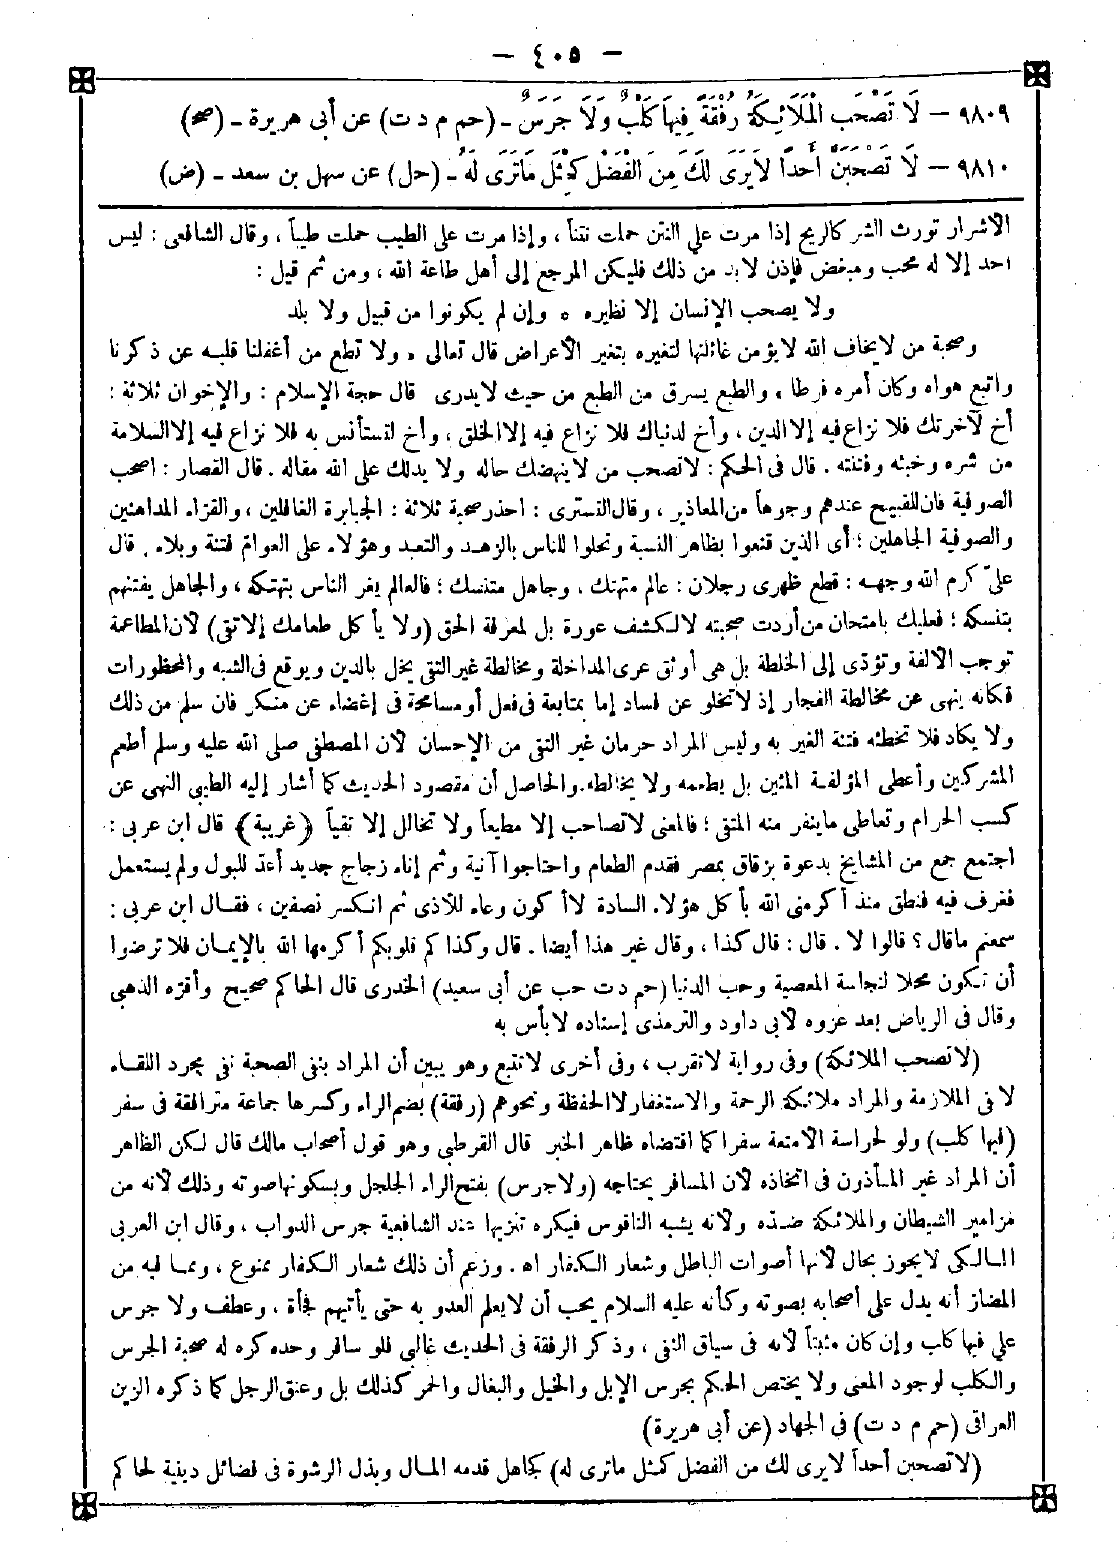 — ٤٠٥ —
٩٨٠٩ — لَا تَصْحَبُ الْمَلَائِكَةُ رُفْقَةً فِيهَا كَلْبٌ وَلَا جَرَسٌ ـ (حم م د ت) عن أبى هريرة ـ (صح)
٩٨١٠ — لَا تَصْحَبَنَّ أَحَداً لَايَرَى لَكَ مِنَ الْفَضْلِ كَمِثْلِ مَاتَرَى لَهُ ـ (حل) عن سهل بن سعد ـ (ض)
الأشرار تورث الشر كالريح إذا مرت على النتن حملت نتناً ، وإذا مرت على الطيب حملت طيباً ، وقال الشافعى : ليس
احد إلا له محب ومبغض فإذن لابد من ذلك فليكن المرجع إلى أهل طاعة الله ، ومن ثم قيل :
ولا يصحب الإنسان إلا نظيره ه وإن لم يكونوا من قبيل ولا بلد
وصحبة من لايخاف الله لايؤمن غائلتها لتغيره بتغير الأعراض قال تعالى ه ولا تطع من أغفلنا قلبه عن ذكرنا
واتبع هواه وكان أمره فرطا ، والطبع يسرق من الطبع من حيث لايدرى قال حجة الإسلام : والإخوان ثلاثة :
أخ لآخرتك فلا نزاع فيه إلا الدين ، وأخ لدنياك فلا نزاع فيه إلا الخلق ، وأخ لتستأنس به فلا نزاع فيه إلا السلامة
من شره وخبثه وفتنته . قال فى الحكم : لاتصحب من لاينهضك حاله ولا يدلك على الله مقاله . قال القصار : اصحب
الصوفية فان للقبيح عندهم وجوهاً من المعاذير ، وقال التسترى : احذر صحبة ثلاثة : الجبابرة الغافلين ، والقراء المداهنين
والصوفية الجاهلين ؛ أى الذين قنعوا بظاهر النسبة وتحلوا للناس بالزهد والتعبد وهؤلاء على العوام فتنة وبلاء . قال
علىّ كرم الله وجهه : قطع ظهرى رجلان : عالم متهتك ، وجاهل متنسك ؛ فالعالم يغر الناس بتهتكه ، والجاهل يفتنهم
بتنسكه ؛ فعليك بامتحان من أردت صحبته لا لكشف عورة بل لمعرفة الحق (ولا يأكل طعامك إلا تقى) لأن المطاعمة
توجب الألفة وتؤدّى إلى الخلطة بل هى أوثق عرى المداخلة ومخالطة غير التقى يخل بالدين ويوقع فى الشبه والمحظورات
فكأنه ينهى عن مخالطة الفجار إذ لاتخلو عن فساد إما بمتابعة فى فعل أو مسامحة فى إغضاء عن منكر فان سلم من ذلك
ولا يكاد فلا تخطئه فتنة الغير به وليس المراد حرمان غير التقى من الإحسان لأن المصطفى صلى الله عليه وسلم أطعم
المشركين وأعطى المؤلفة المئين بل يطعمه ولا يخالطه . والحاصل أن مقصود الحديث كما أشار إليه الطيبى النهى عن
كسب الحرام وتعاطى ماينفر منه المتقى ؛ فالمعنى لاتصاحب إلا مطيعاً ولا تخالل إلا تقياً (غريبة) قال ابن عربى :
اجتمع جمع من المشايخ بدعوة بزقاق بمصر فقدم الطعام واحتاجوا آنية وثم إناء زجاج جديد أعد للبول ولم يستعمل
فغرف فيه فنطق منذ أكرمنى الله بأكل هؤلاء السادة لا أكون وعاء للأذى ثم انكسر نصفين ، فقال ابن عربى :
سمعتم ماقال ؟ قالوا لا . قال : قال كذا ، وقال غير هذا أيضا . قال وكذا كم قلوبكم أكرمها الله بالإيمان فلا ترضوا
أن تكون محلا لنجاسة المعصية وحب الدنيا (حم د ت حب عن أبى سعيد) الخدرى قال الحاكم صحيح وأقره الذهبى
وقال فى الرياض بعد عزوه لأبى داود والترمذى إسناده لابأس به
(لا تصحب الملائكة) وفى رواية لاتقرب ، وفى أخرى لاتتبع وهو يبين أن المراد بنفى الصحبة نفى مجرد اللقاء
لا فى الملازمة والمراد ملائكة الرحمة والاستغفار لا الحفظة ونحوهم (رفقة) بضم الراء وكسرها جماعة مترافقة فى سفر
(فيها كلب) ولو لحراسة الأمتعة سفرا كما اقتضاه ظاهر الخبر قال القرطبى وهو قول أصحاب مالك قال لكن الظاهر
أن المراد غير المأذون فى اتخاذه لأن المسافر يحتاجه (ولا جرس) بفتح الراء الجلجل وبسكونها صوته وذلك لأنه من
مزامير الشيطان والملائكة ضده ولأنه يشبه الناقوس فيكره تنزيها عند الشافعية جرس الدواب ، وقال ابن العربى
المالكى لايجوز بحال لأنها أصوات الباطل وشعار الكفار اه . وزعم أن ذلك شعار الكفار ممنوع ، ومما فيه من
المضار أنه يدل على أصحابه بصوته وكأنه عليه السلام يحب أن لايعلم العدو به حتى يأتيهم فجأة ، وعطف ولا جرس
على فيها كلب وإن كان مثبتاً لأنه فى سياق النفى ، وذكر الرفقة فى الحديث غالبى فلو سافر وحده كره له صحبة الجرس
والكلب لوجود المعنى ولا يختص الحكم بجرس الإبل والخيل والبغال والحمر كذلك بل وعنق الرجل كما ذكره الزين
العراقى (حم م د ت) فى الجهاد (عن أبى هريرة)
(لا تصحبن أحداً لايرى لك من الفضل كمثل ماترى له) كجاهل قدمه المال وبذل الرشوة فى فضائل دينية لحاكم